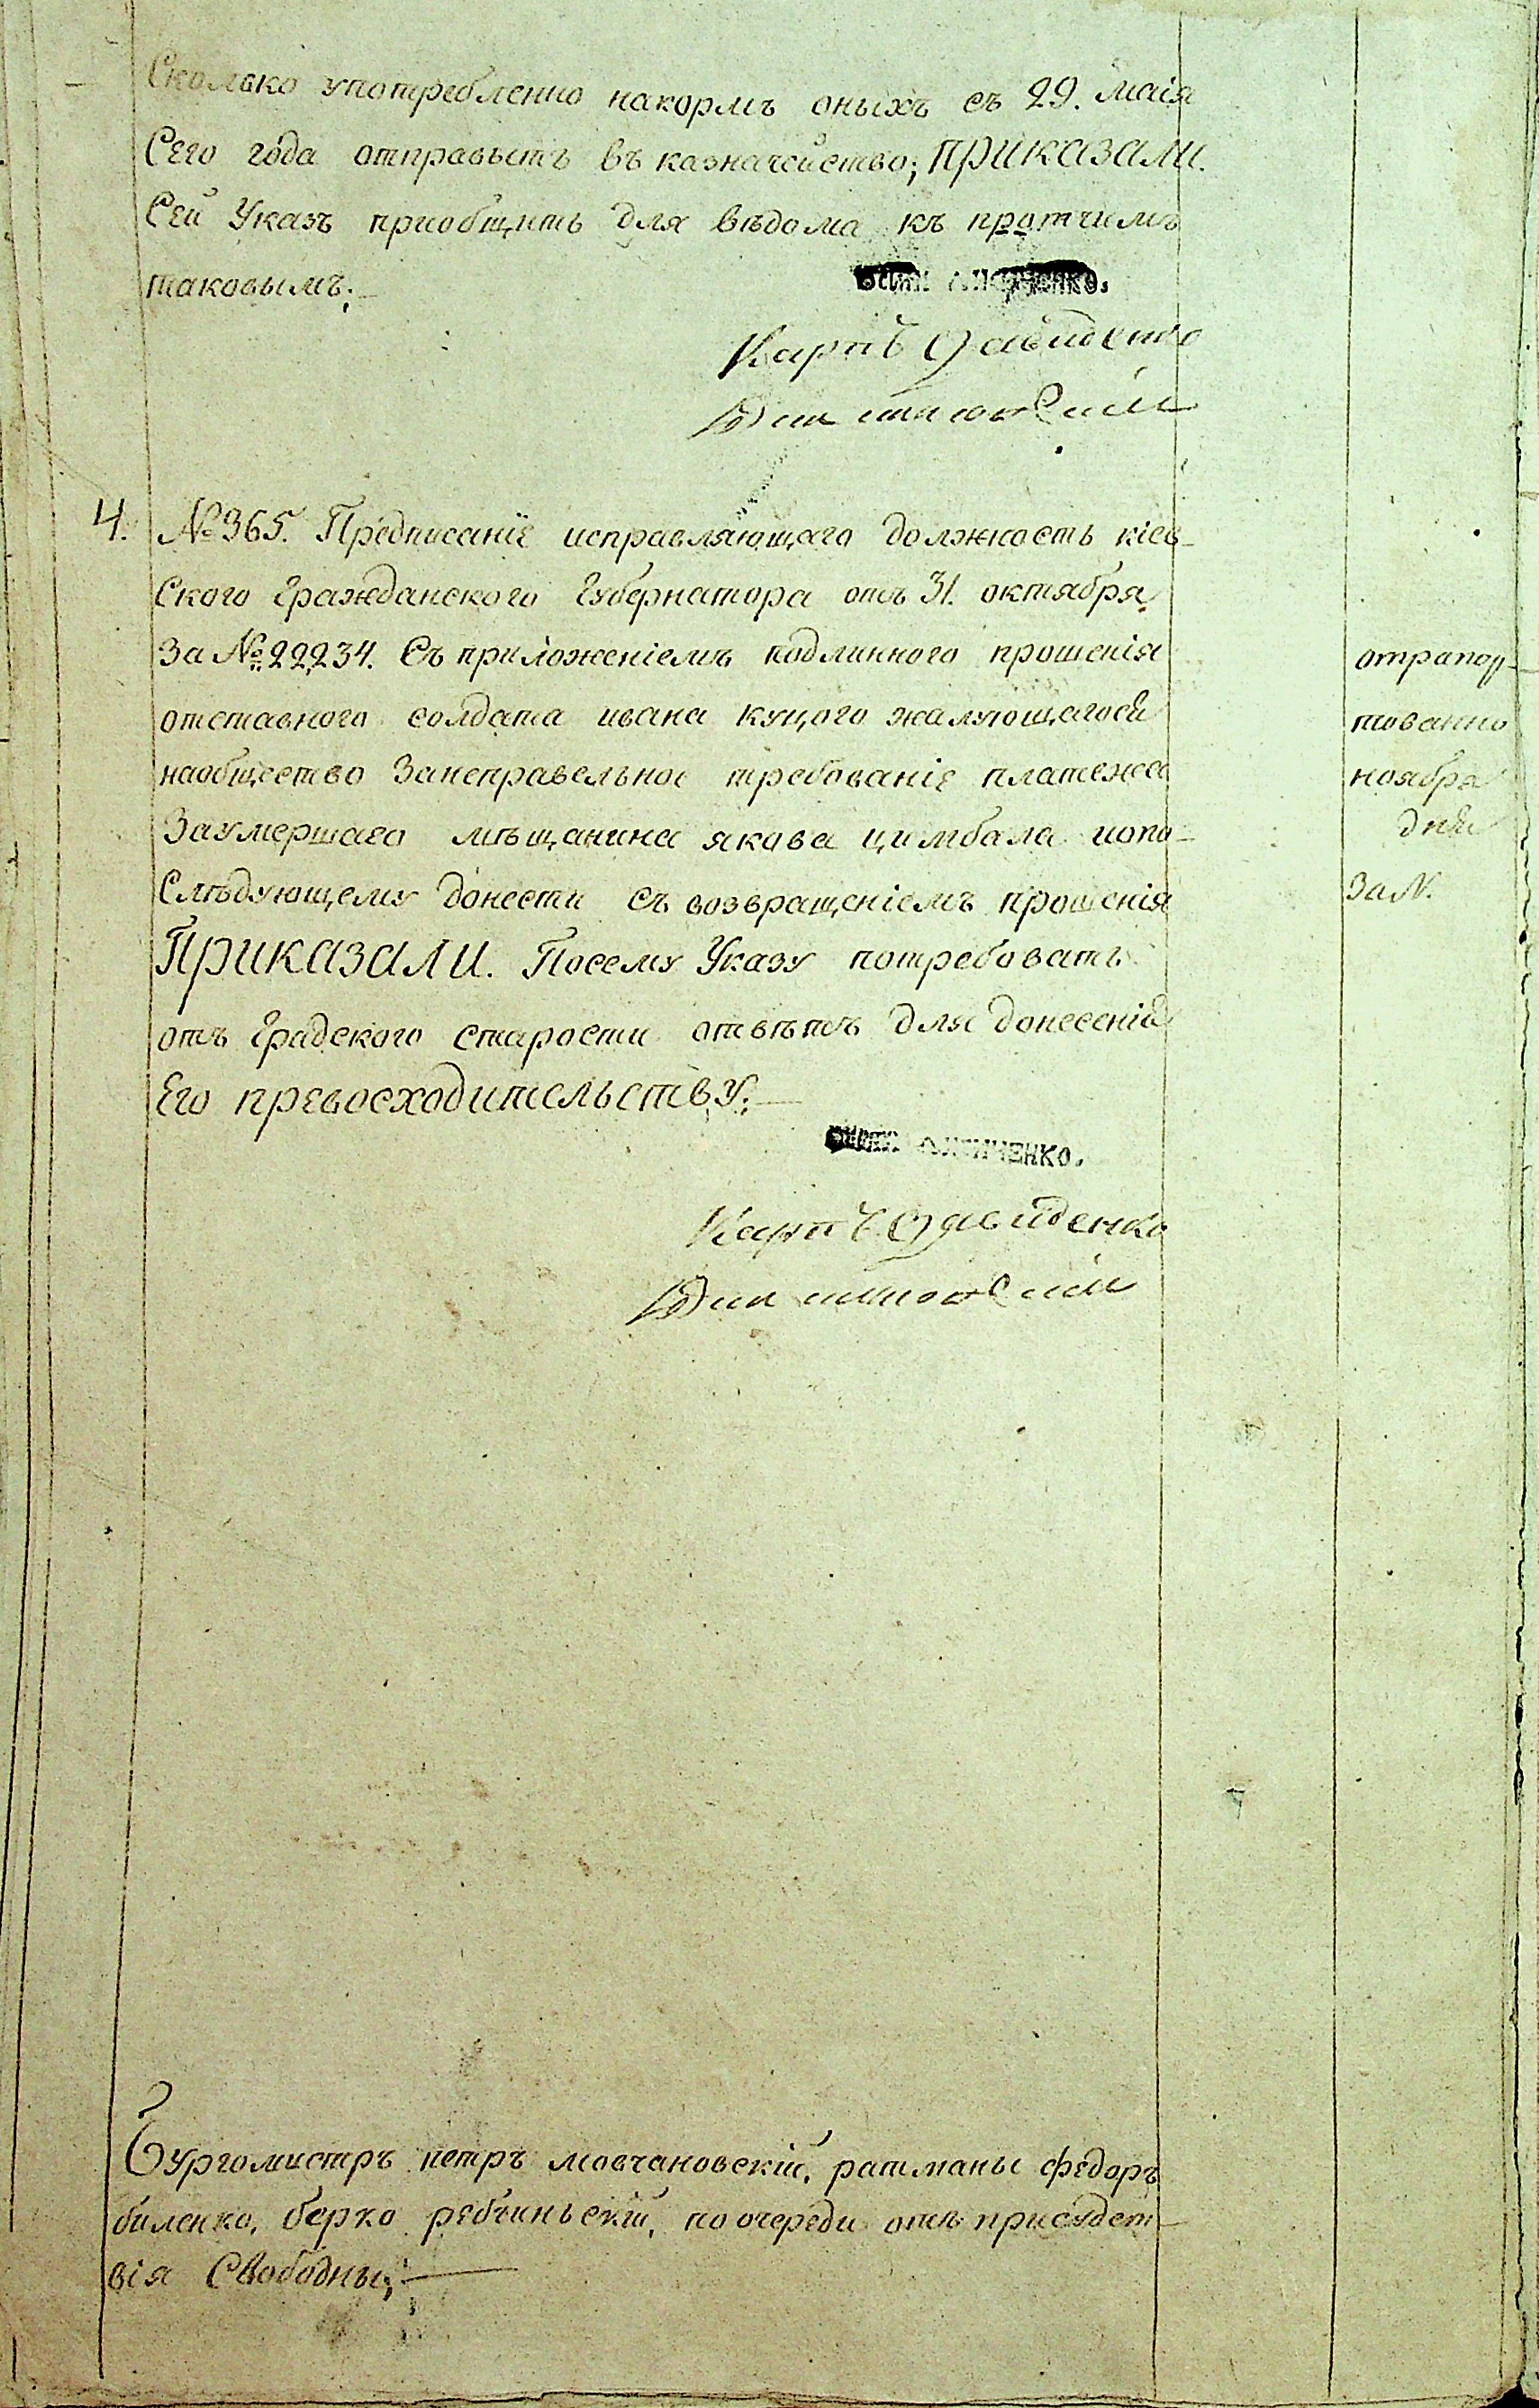 Сколько употребленно накормъ оныхъ съ 29. маія
Сего года отправытъ въ казначейство; ПРИКАЗАЛИ.
Сей Указъ приобщить для вѣдома къ протчимъ
таковымъ;
Карпъ Давиденко
4. №365. Предписаніе исправляющаго должность кіев-
Ского Гражданского Губернатора отъ 31. октября
За №22234. Съ приложеніемъ подлинного прошенія
отставного солдата ивана куцого жалующагося
наобщество Занеправельное требованіе платежа
Заумершаго мѣщанина якова цимбала ипо-
Слѣдующему донести съ возвращеніемъ прошенія
ПРИКАЗАЛИ. Посему Указу потребовать
отъ Градского старости отвѣтъ для донесенія
Его превосходительству;
отрапор-
тованно
ноября
дня
За N.
ЛИСИЧЕНКО.
Карпъ Давиденко
Бургомистръ петръ мовчановскій, ратманы федоръ
биленко, берко ребчиньскій, по очереди отъ присудст-
вія Свободны;